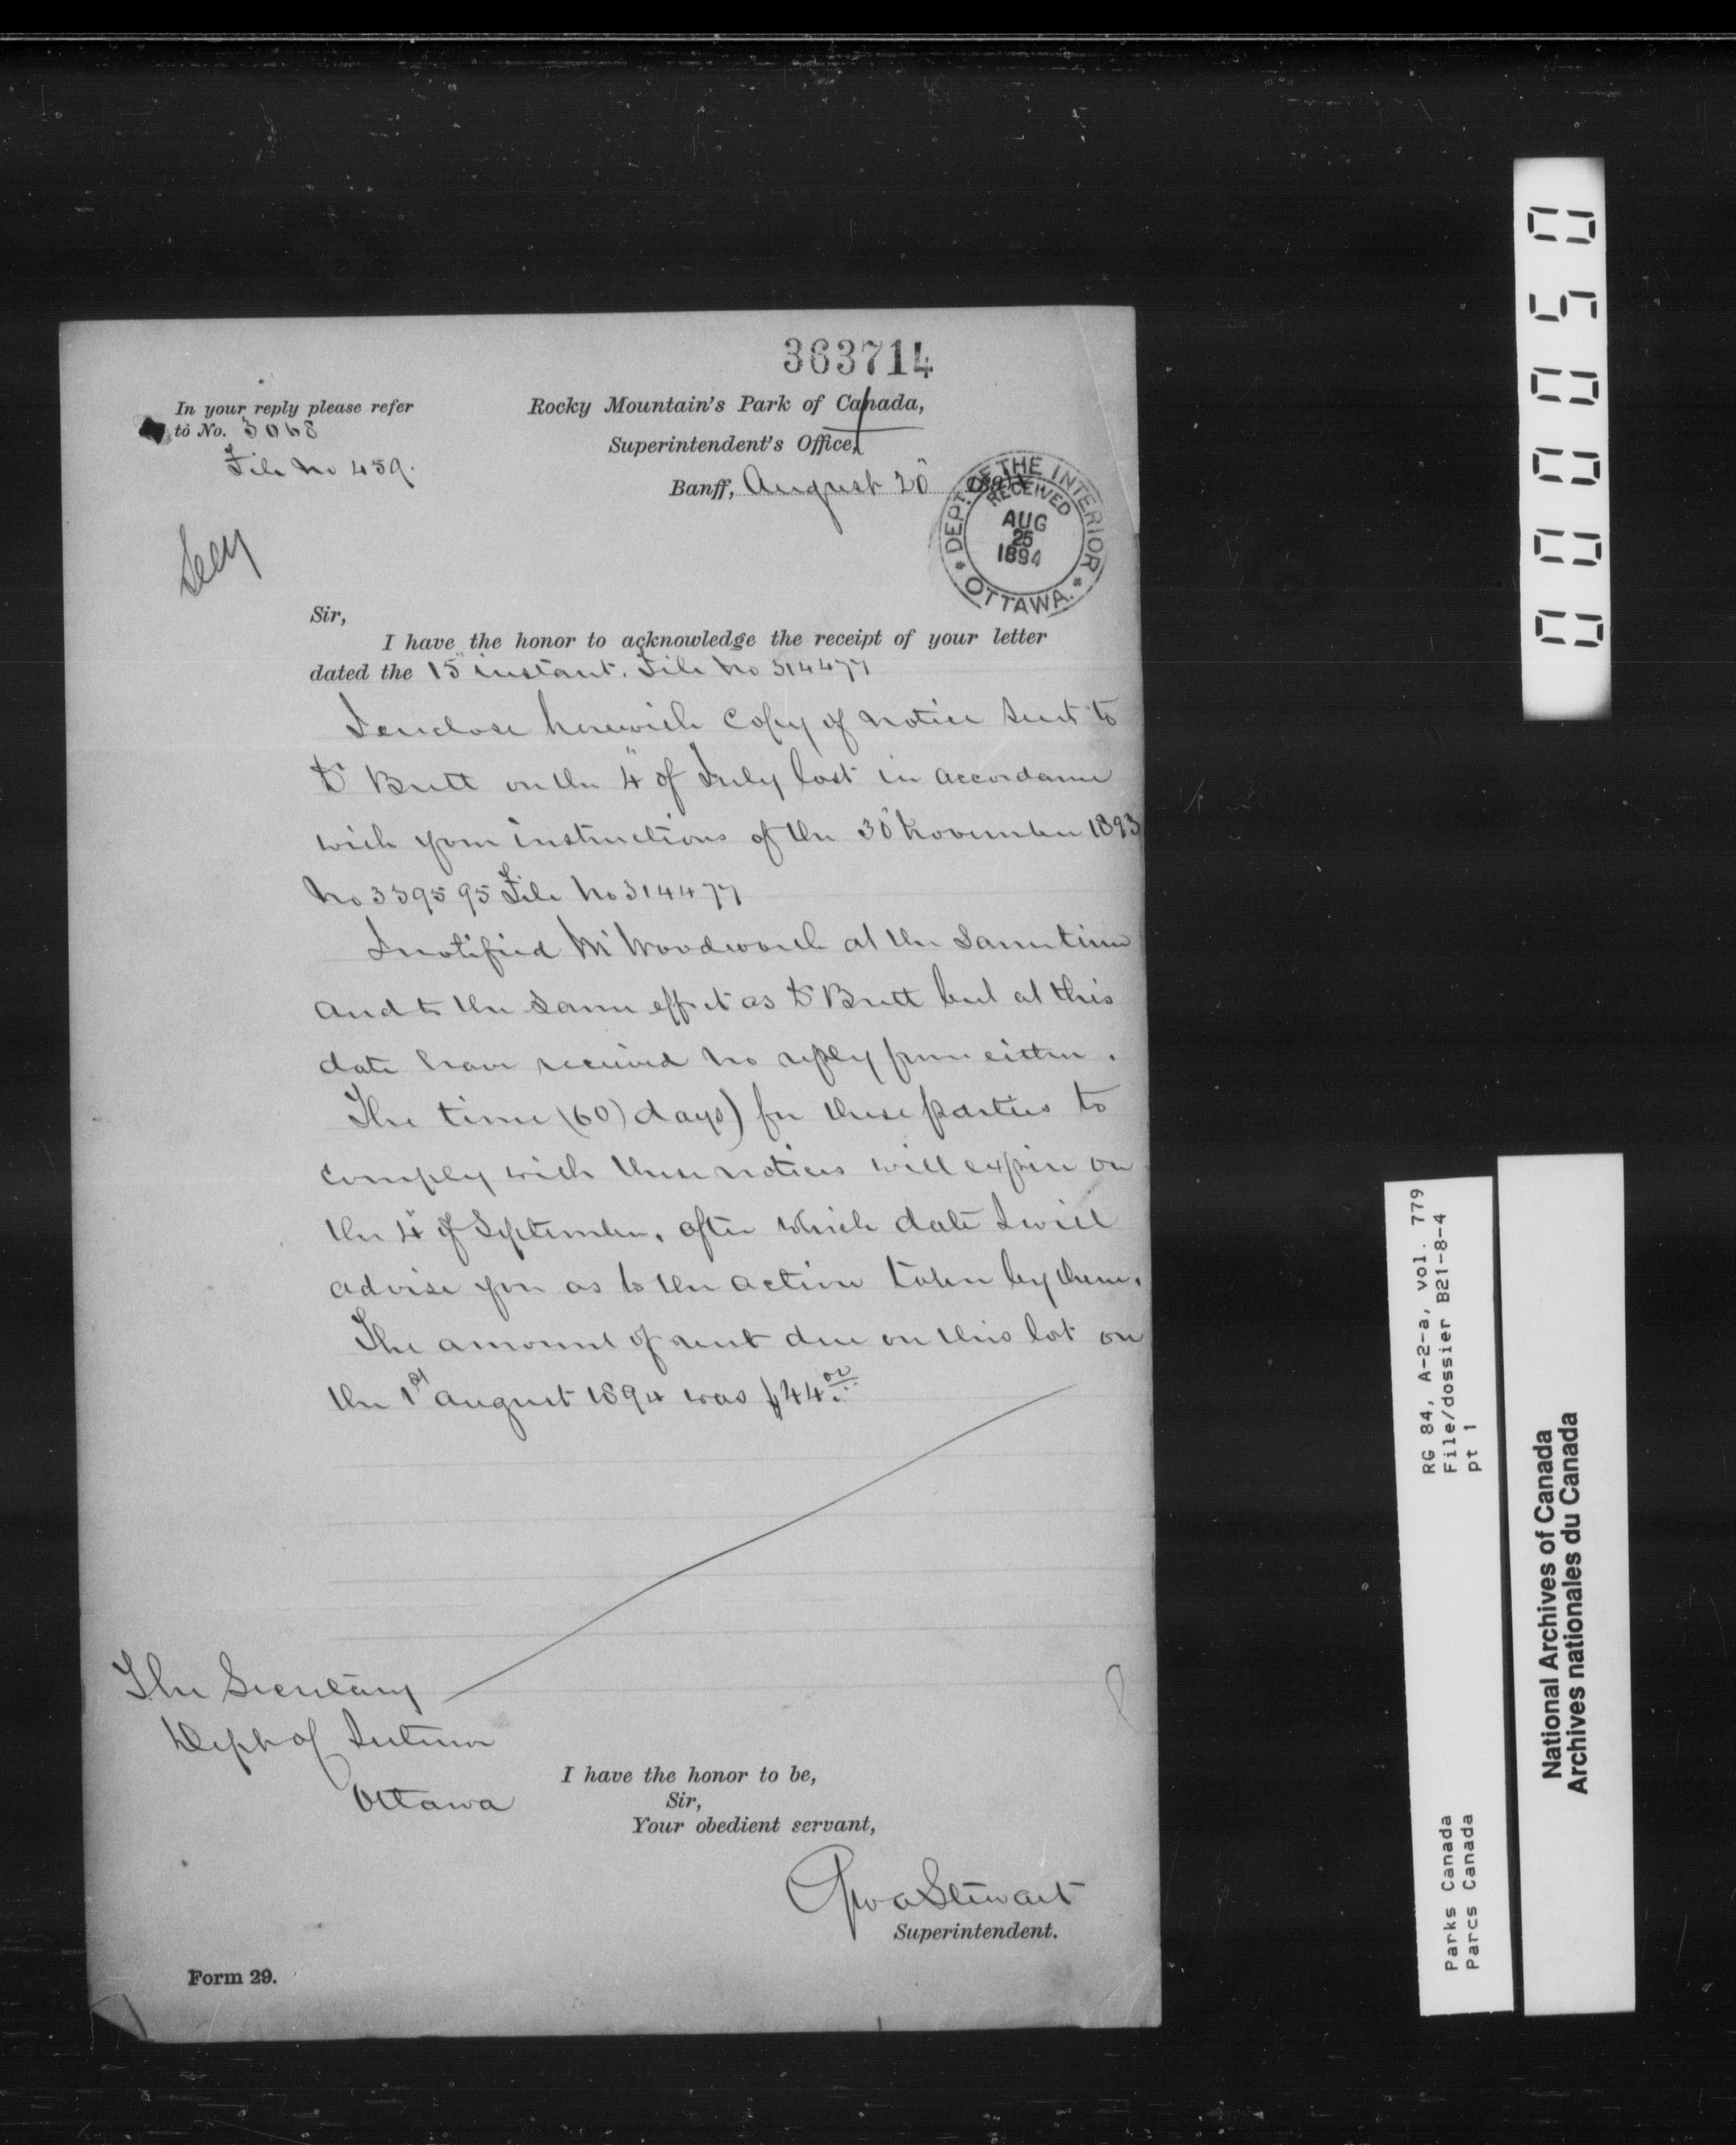 363714
In your reply please refer
to No. 3068
File No 459.
Rocky Mountain's Park of Canada,
Superintendent's Office,
Banff, August 20" 1894
DEPT. OF THE INTERIOR
RECEIVED
AUG
25
1894
* OTTAWA. *
Secy
Sir,
I have the honor to acknowledge the receipt of your letter
dated the 15" instant. File No 314477
I enclose herewith Copy of notice sent to
Dr Brett on the 4" of July last in accordance
with your instructions of the 30" November 1893
No 339595 File No 314477
I notified Mr Woodworth at the same time
and to the same effect as Dr Brett but at this
date have received no reply from either.
The time (60) days) for these parties to
comply with these notices will expire on
the 4" of September, after which date I will
advise you as to the action taken by them.
The amount of rent due on this lot on
the 1st August 1894 was $44.00
The Secretary
Dept of Interior
Ottawa
I have the honor to be,
Sir,
Your obedient servant,
Geo A Stewart
Superintendent.
Form 29.
0000050
RG 84, A-2-a, vol. 779
File/dossier B21-8-4
pt 1
Parks Canada
Parcs Canada
National Archives of Canada
Archives nationales du Canada